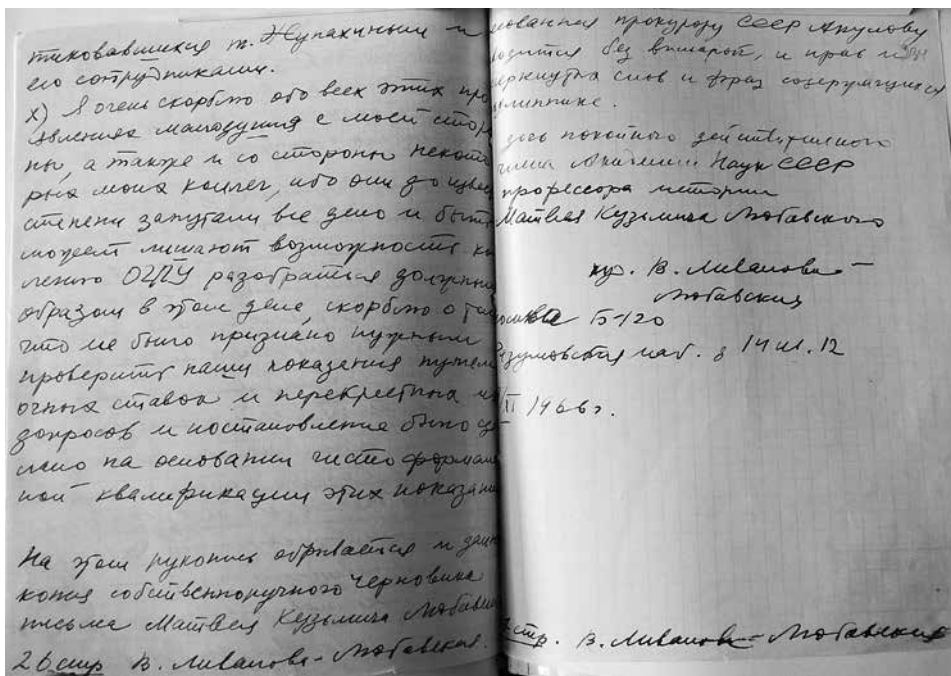 тиковавшихся т. Жупахиным и
его сотрудниками.
х) Я очень скорблю обо всех этих про
явлениях малодушия с моей сторо
ны, а также и со стороны некото
рых моих коллег, ибо они до извес
степени запутали все дело и быть
может лишают возможность ко
легию ОГПУ разобраться должным
образом в этом деле, скорблю о том
что не было признано нужным
проверить наши показания путем
очных ставок и перекрестных
допросов и постановление было
на основании чисто формаль
ной квалификации этих показани
На этом рукопись обрывается и
копия собственноручного черновика
письма Матвея Кузьмича Любавс
26 стр В. Ливанова-Любавская.
ованная прокурору СССР Акулову
водится без вымарок, и
еркнутых слов и фраз содержащихся
длиннике.
дочь покойного действительного
члена Академии Наук СССР
профессора истории
Матвея Кузьмича Любавского
В. Ливанова-
Любавская
Москва Б-120
наб. д 14 кв. 12
1966г.
стр. В. Ливанова-Любавская